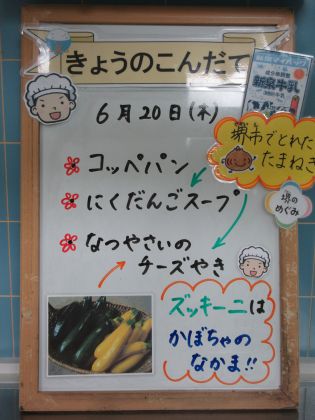 きょうのこんだて
6月20日(木)
コッペパン
にくだんごスープ
なつやさいの
チーズやき
新泉牛乳
堺市でとれた
たまねぎ
堺の
めぐみ
ズッキーニは
かぼちゃの
なかま!!